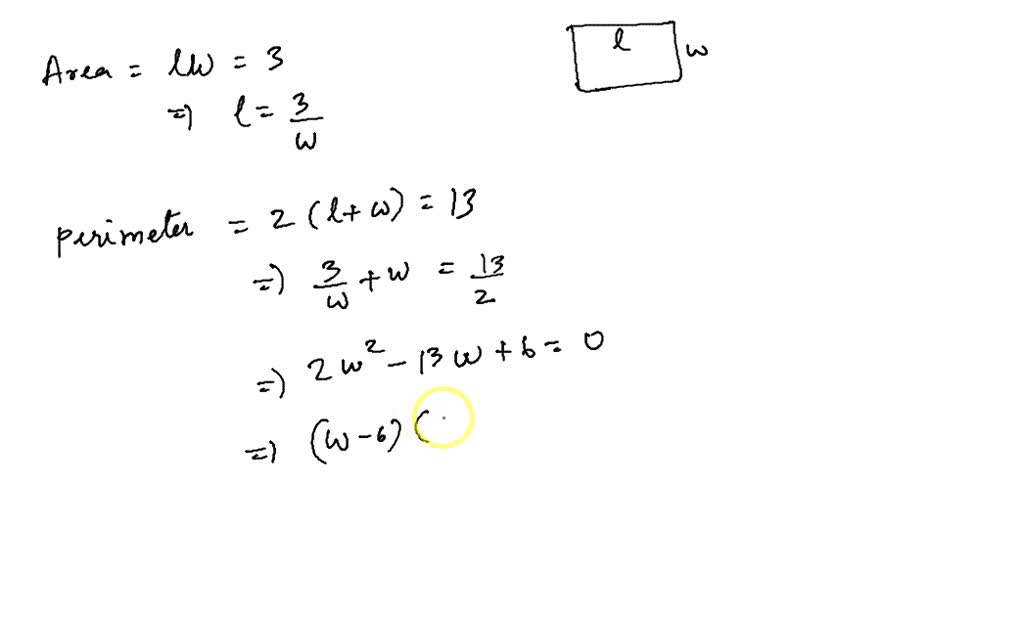 Area = lw = 3
l
w
=) l = 3/w
perimeter = 2 (l + w) = 13
=) 3/w + w = 13/2
=) 2w² - 13w + 6 = 0
=) (w - 6) (